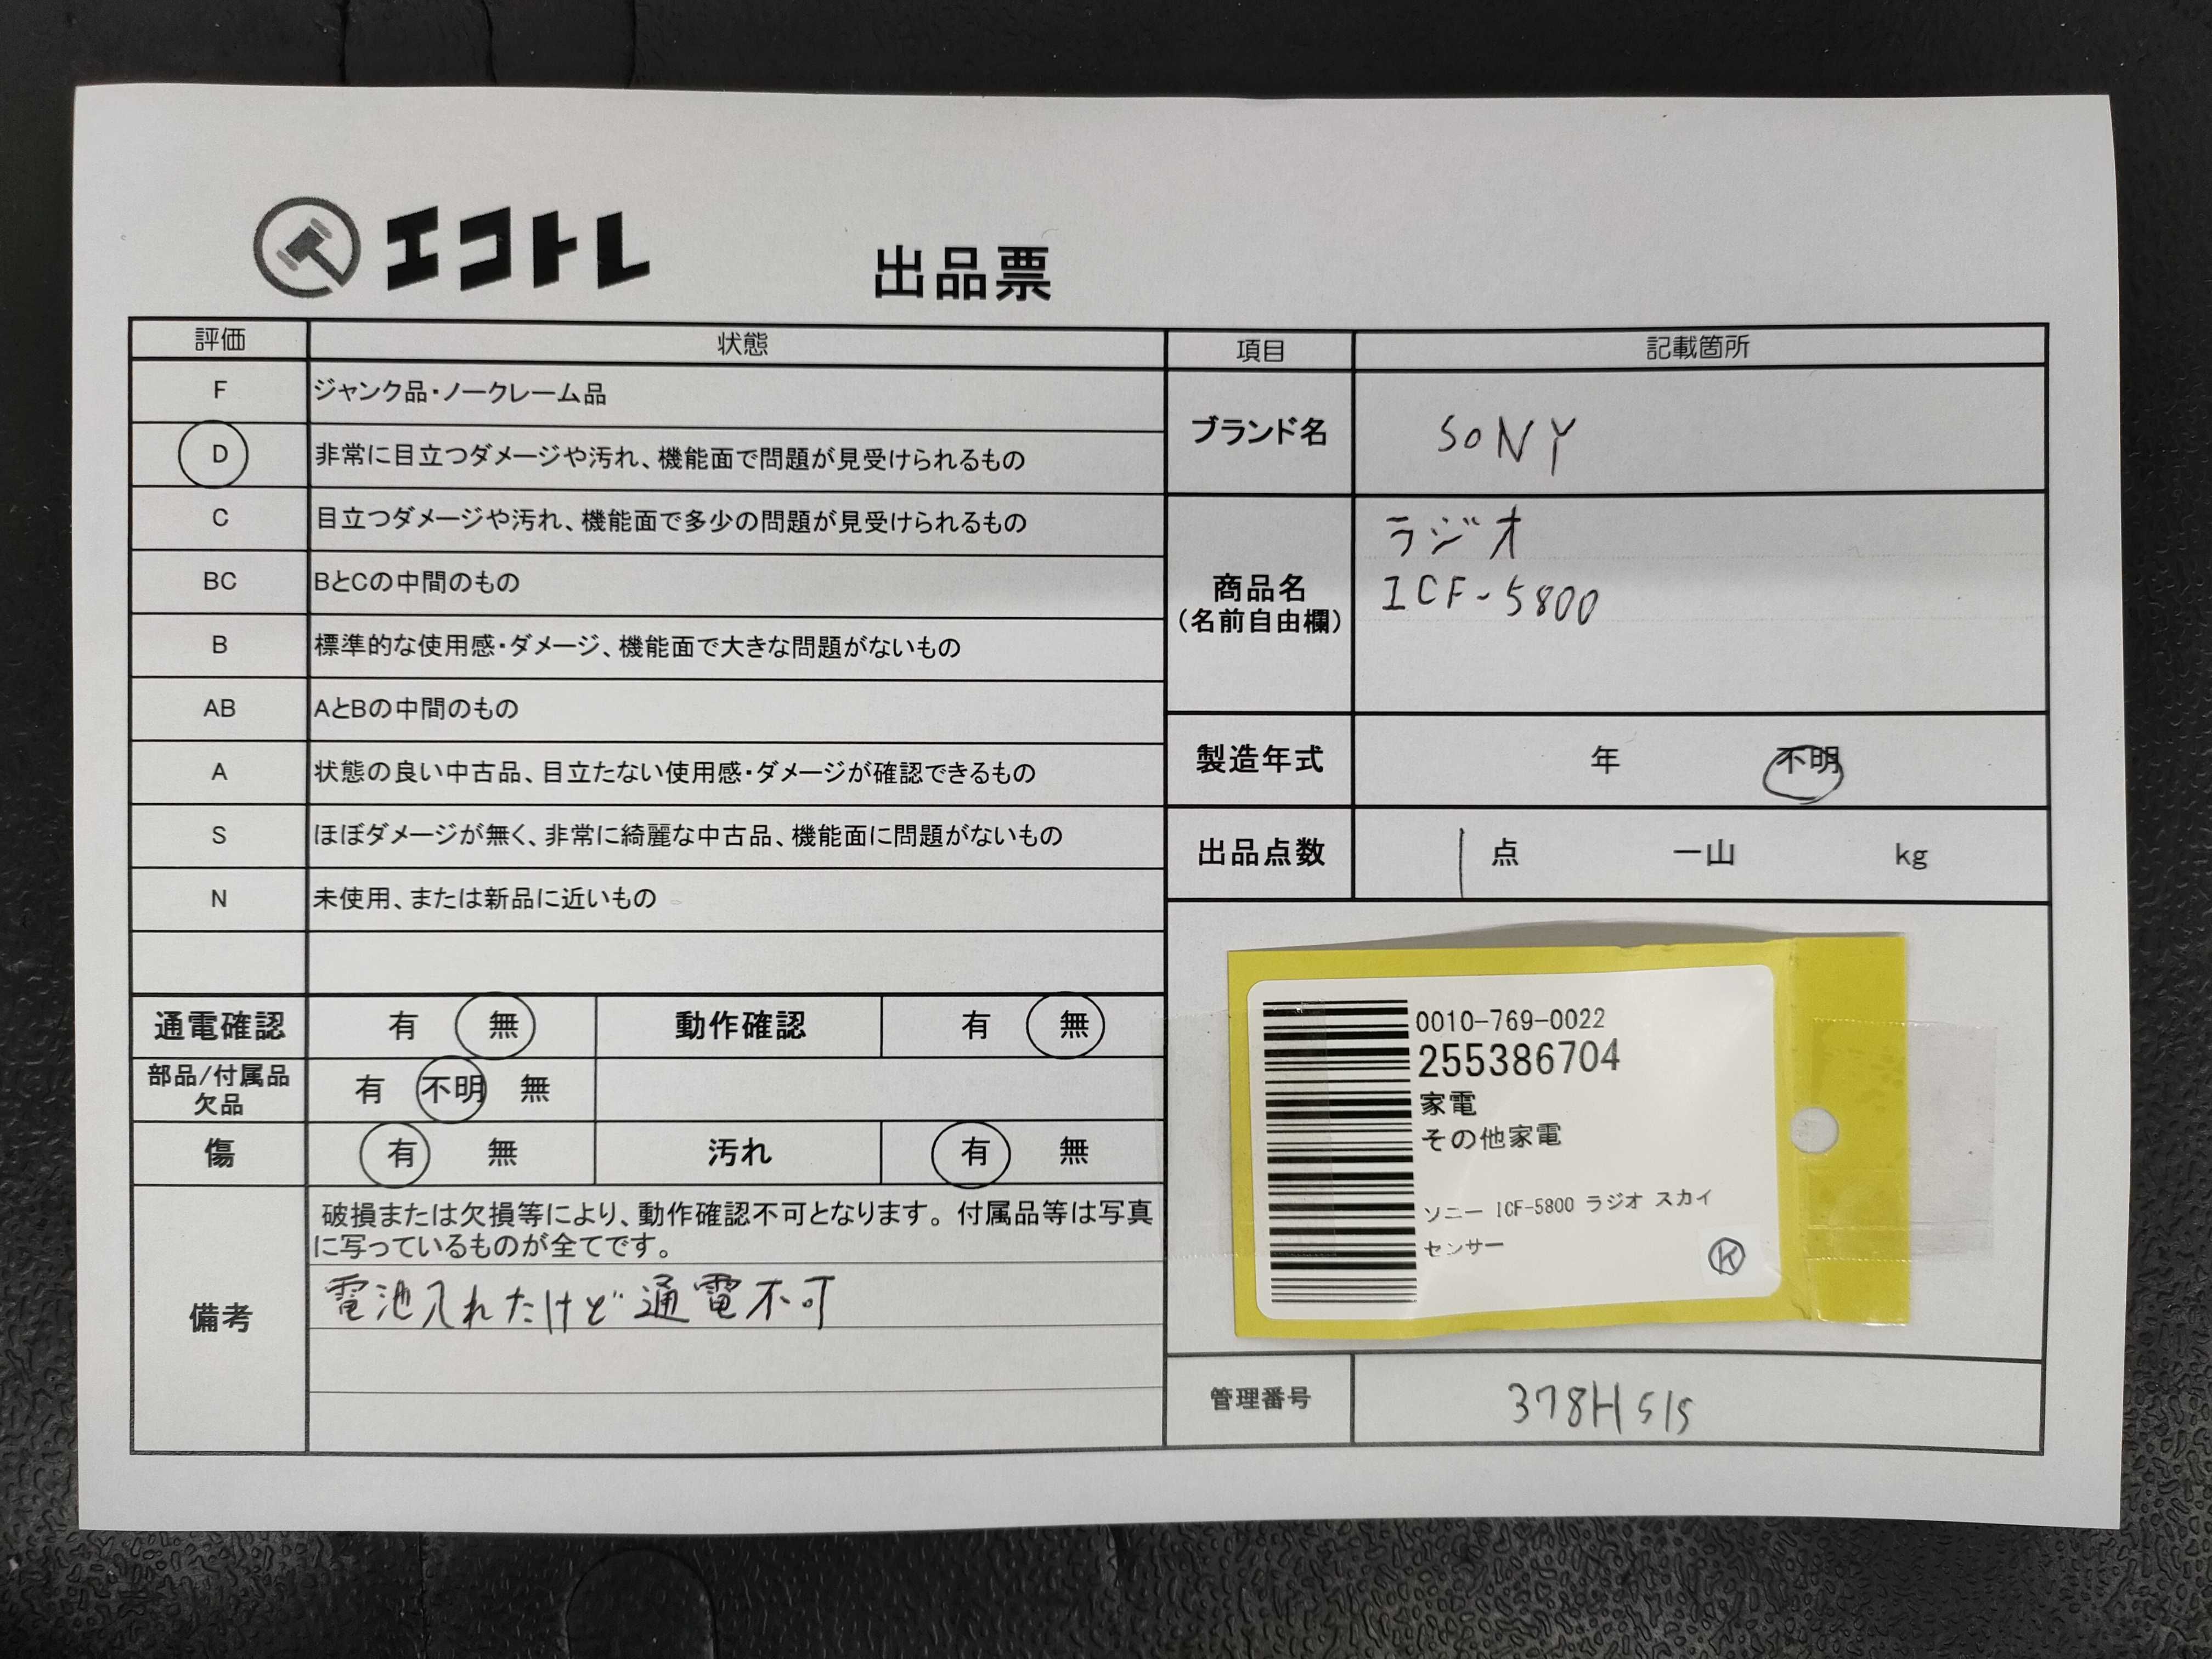 エコトレ
出品票
評価 状態
F ジャンク品・ノークレーム品
D 非常に目立つダメージや汚れ、機能面で問題が見受けられるもの
C 目立つダメージや汚れ、機能面で多少の問題が見受けられるもの
BC BとCの中間のもの
B 標準的な使用感・ダメージ、機能面で大きな問題がないもの
AB AとBの中間のもの
A 状態の良い中古品、目立たない使用感・ダメージが確認できるもの
S ほぼダメージが無く、非常に綺麗な中古品、機能面に問題がないもの
N 未使用、または新品に近いもの
通電確認 有 無 動作確認 有 無
部品/付属品
欠品 有 不明 無
傷 有 無 汚れ 有 無
備考
破損または欠損等により、動作確認不可となります。付属品等は写真
に写っているものが全てです。
電池入れたけど通電不可
項目 記載箇所
ブランド名 SONY
商品名
(名前自由欄)
ラジオ
ICF-5800
製造年式 年 不明
出品点数 1 点 一山 kg
0010-769-0022
255386704
家電
その他家電
ソニー ICF-5800 ラジオ スカイ
センサー
K
管理番号 378H515